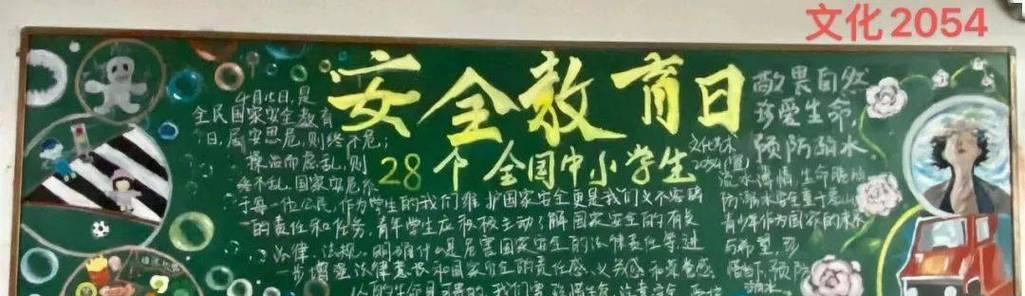 文化2054
安全教育日
28个全国中小学生
4月15日,是
全民国家安全教育
日,居安思危,则终不危;
操治而虑乱,则
终不乱。国家安危不
于每一位公民,作为学生的我们维护国家安全更是我们义不容辞
的责任和任务,青年学生应积极主动了解国家安全的有关
法律、法规,明确什么是危害国家安全的法律责任等,进
一步增强法律意识和国家安全的责任感、义务感和荣誉感
敬畏自然
珍爱生命,
预防溺水
文化艺术
2054(宣)
流水潺情,生命脆弱
青少年作为国家的未来
与希望
预防
溺水